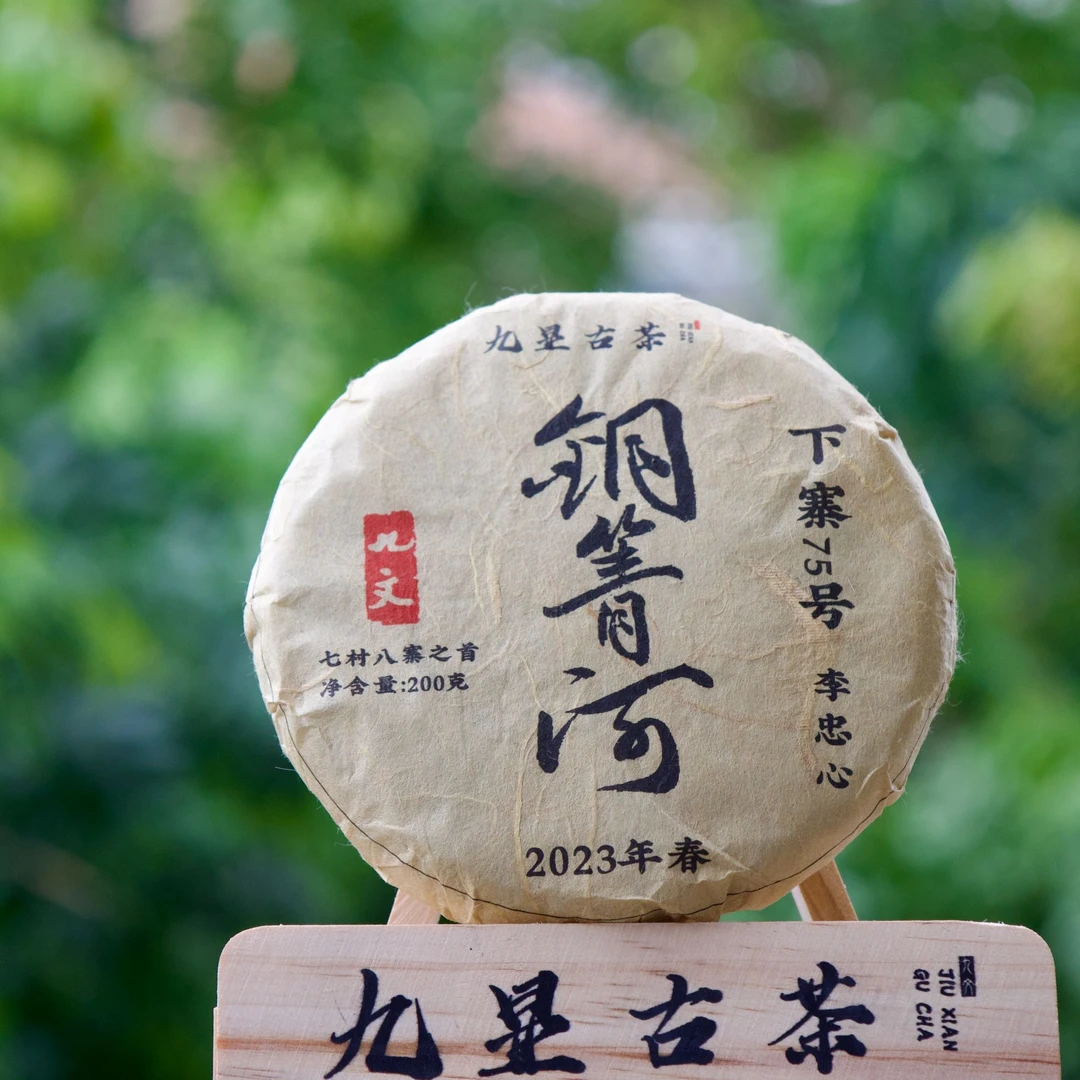 九显古茶
銅箐河
下寨75号 李忠心
九文
七村八寨之首
净含量:200克
2023年春
九显古茶
九文
JIU XIAN
GU CHA